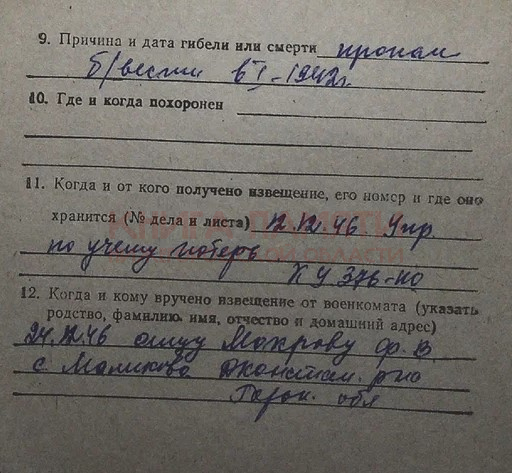 9. Причина и дата гибели или смерти пропал
б/вести в I-1942г.
10. Где и когда похоронен
11. Когда и от кого получено извещение, его номер и где оно
хранится (№ дела и листа) 12.12.46 Упр.
по учету потерь
КУ 376-40
12. Когда и кому вручено извещение от военкомата (указать
родство, фамилию, имя, отчество и домашний адрес)
24.12.46 отцу Махрову Ф. В.
с
обл